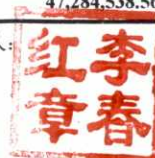 47,284,538.56
:
李春
红章